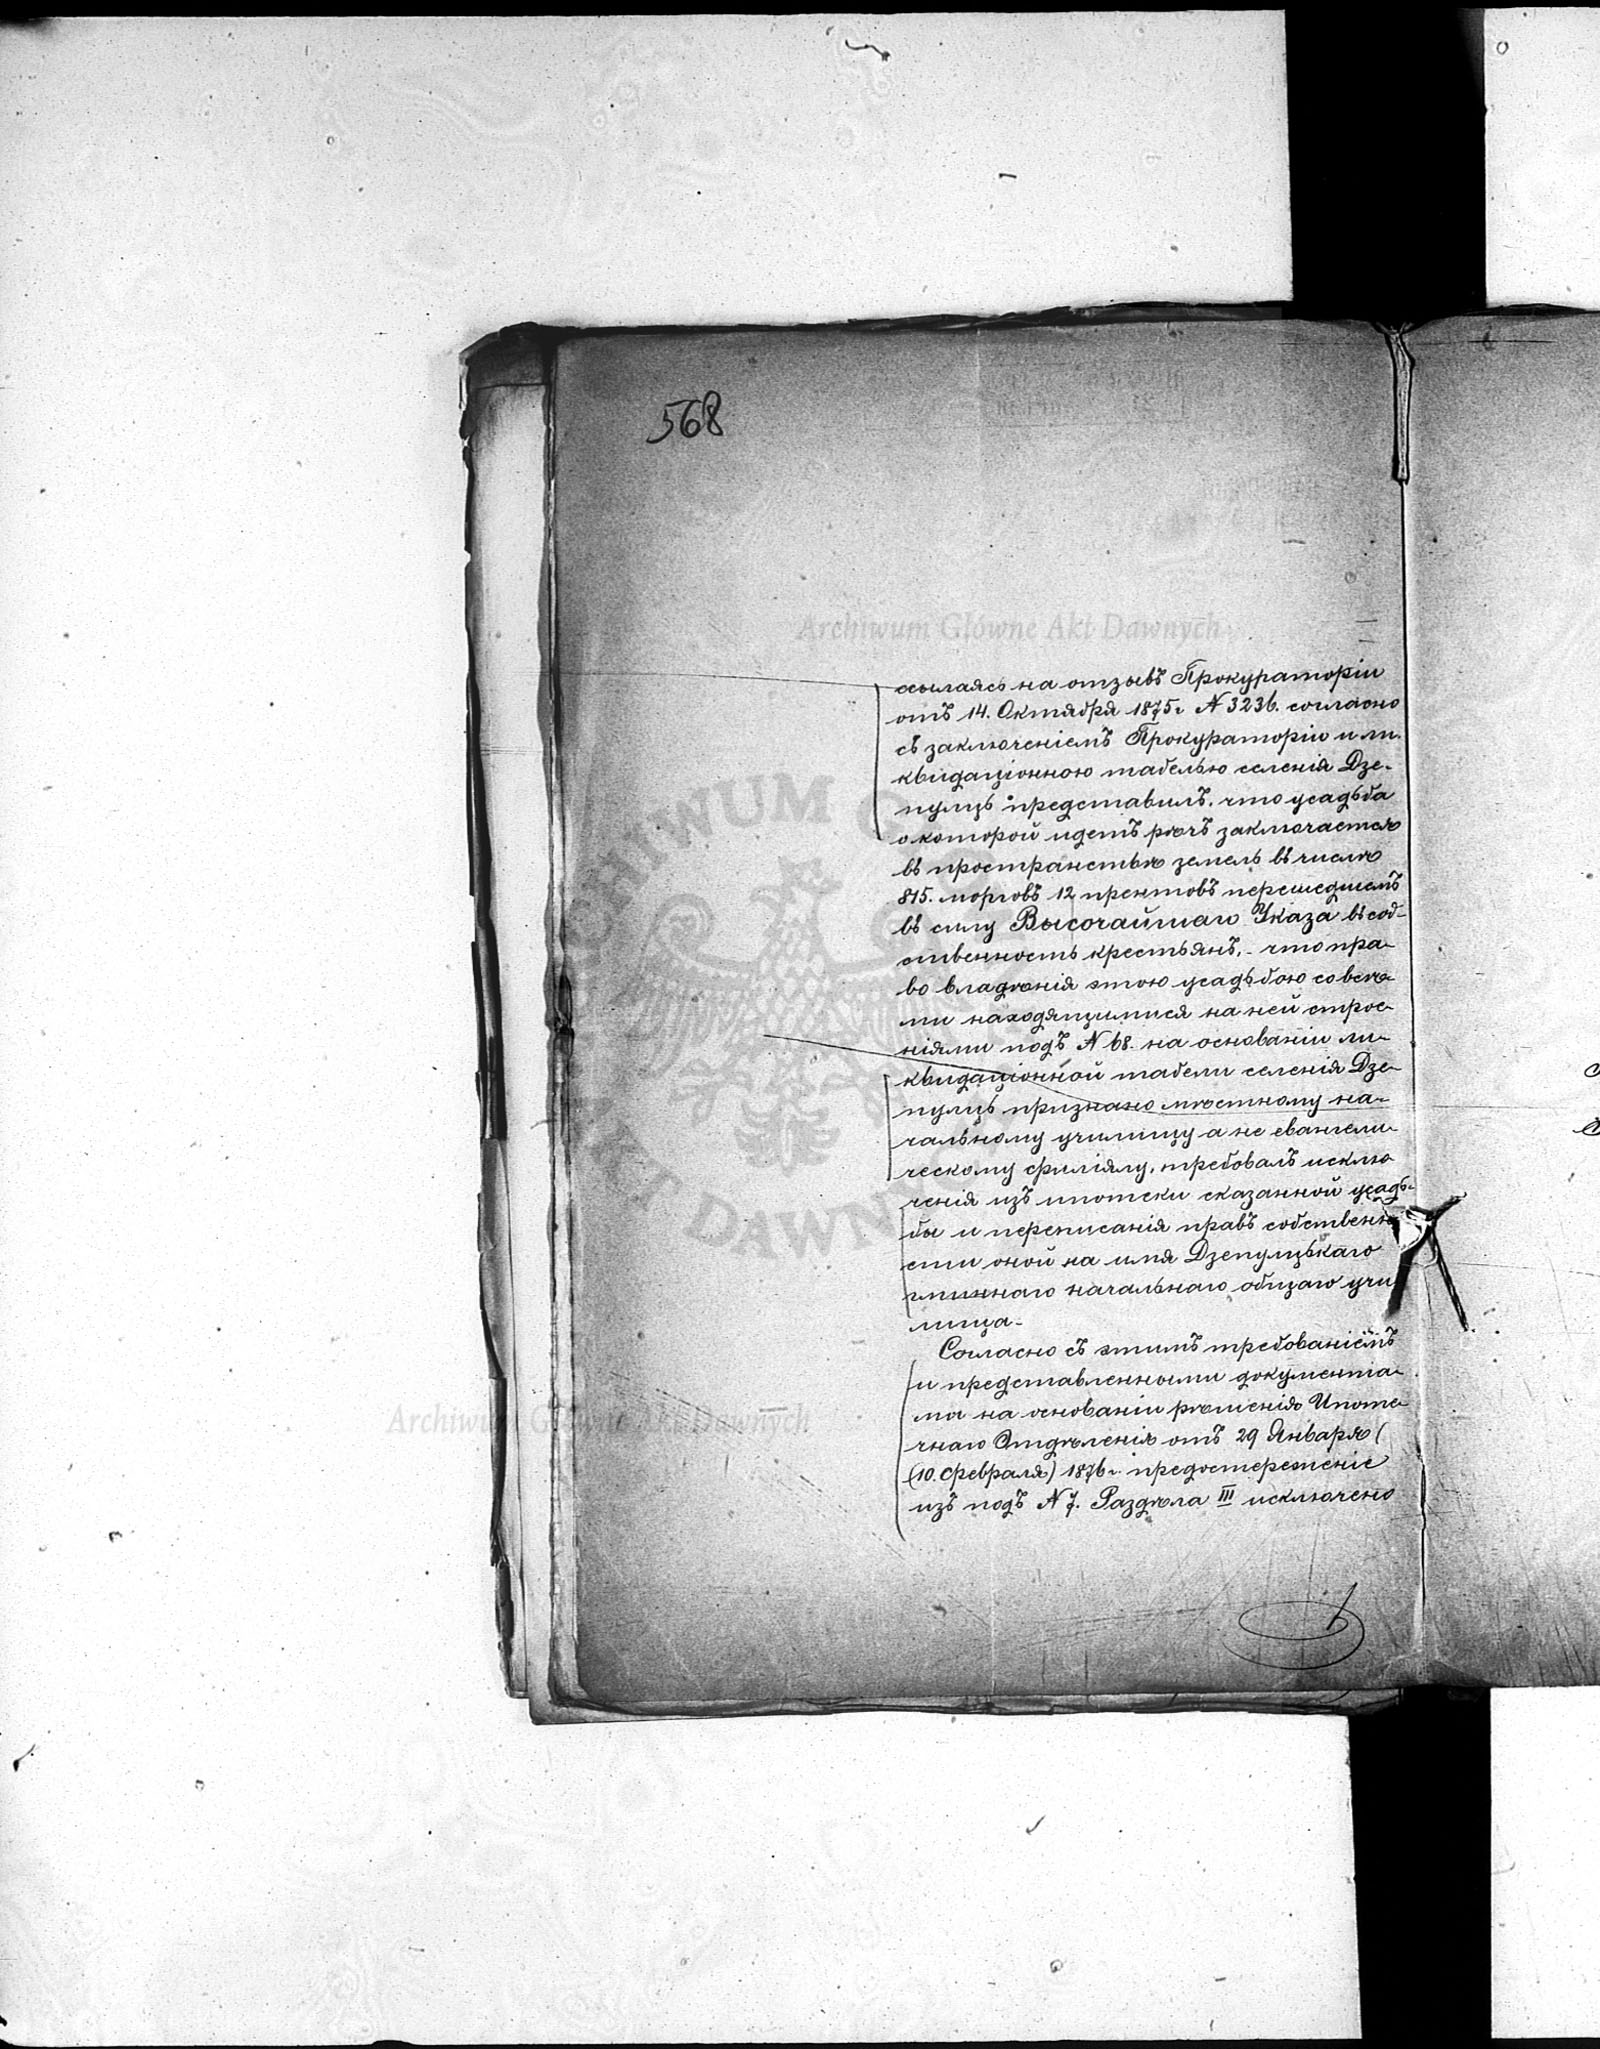 568
ссылаясь на отзывъ Прокураторіи
отъ 14. Октября 1875г N 3236. согласно
съ заключеніемъ Прокураторіи и ли-
квидаціонною табелью селенія Дзе-
пулць представилъ, что усадьба
о которой идетъ рѣчь заключается
въ пространствѣ земель въ числѣ
815. морговъ 12 прентовъ перешедшемъ
въ силу Высочайшаго Указа въ соб-
ственность крестьянъ, - что пра-
во владѣнія этою усадьбою со всѣ-
ми находящимися на ней строе-
ніями подъ N 68. на основаніи ли-
квидаціонной табели селенія Дзе-
пулць признано мѣстному на-
чальному училищу а не евангели-
ческому филіялу, требовалъ исклю
ченія изъ ипотеки сказанной усадь-
бы и переписанія правъ собственно
сти оной на имя Дзепулцьскаго
гминнаго начальнаго общаго учи
лища -
Согласно съ этимъ требованіемъ
и представленными документа-
ми на основаніи рѣшенія Ипоте-
чнаго Отдѣленія отъ 29 Января (
(10. Февраля) 1876 г. предостереженіе
изъ подъ N 7. Раздѣла III исключено
Archiwum Główne Akt Dawnych
Archiwum Główne Akt Dawnych